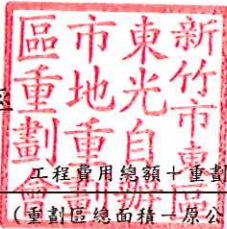 新竹市東區
東光自辦
市地重劃
區重劃會
工程費用總額＋重劃
(重劃區總面積－原公